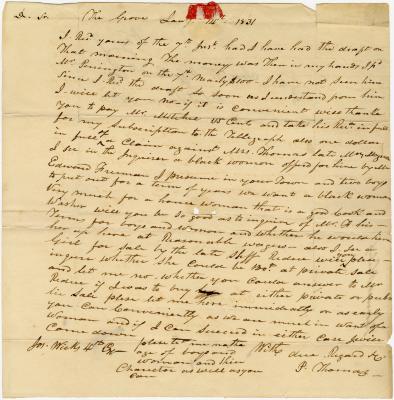 Dr Sir The Grove Jany 14th 1831
I Recd yours of the 7th Inst had I have had the draft on
that morning The money was then in my hands I pd
Mr. Pennington on the 7th I have not seen him
Since I Recd the draft So soon as I understand from him
I will let you no if it is convenient will thank
you to pay Mr. Mitchel 55 Cents and take his Rect in full
for my Subscription to the Telegraph also one dollar
in full of a Claim against Mrs. Thomas late
I see in the Inquirer a black woman offered for hire by Mr
Edward Freeman I presume in your Town and two boys
to put out for a term of years we want a black woman
very much for a house woman that is a good Cook and
washer will you be so good as to inquire of Mr. F his
Terms for boys and woman and whether he would hire
her up here at Reasonable wages - also I see a
Girl for sale by the late Shff Redue will you plese
inquire whether she Could be Bot at private sale
and let me no whether you Could answer to Mr
Redue if I was to buy her at either private or pub
lic sale plese let me hear immediately or as early
you can Conveniently as we are much in want of a
woman and if I can succeed in either case I will
come down
With due Regard &c
P. Thomas
Jos. Wicks 4th Esqr
plese let me no the
age of boys and
woman and thir
Character as well as you
can